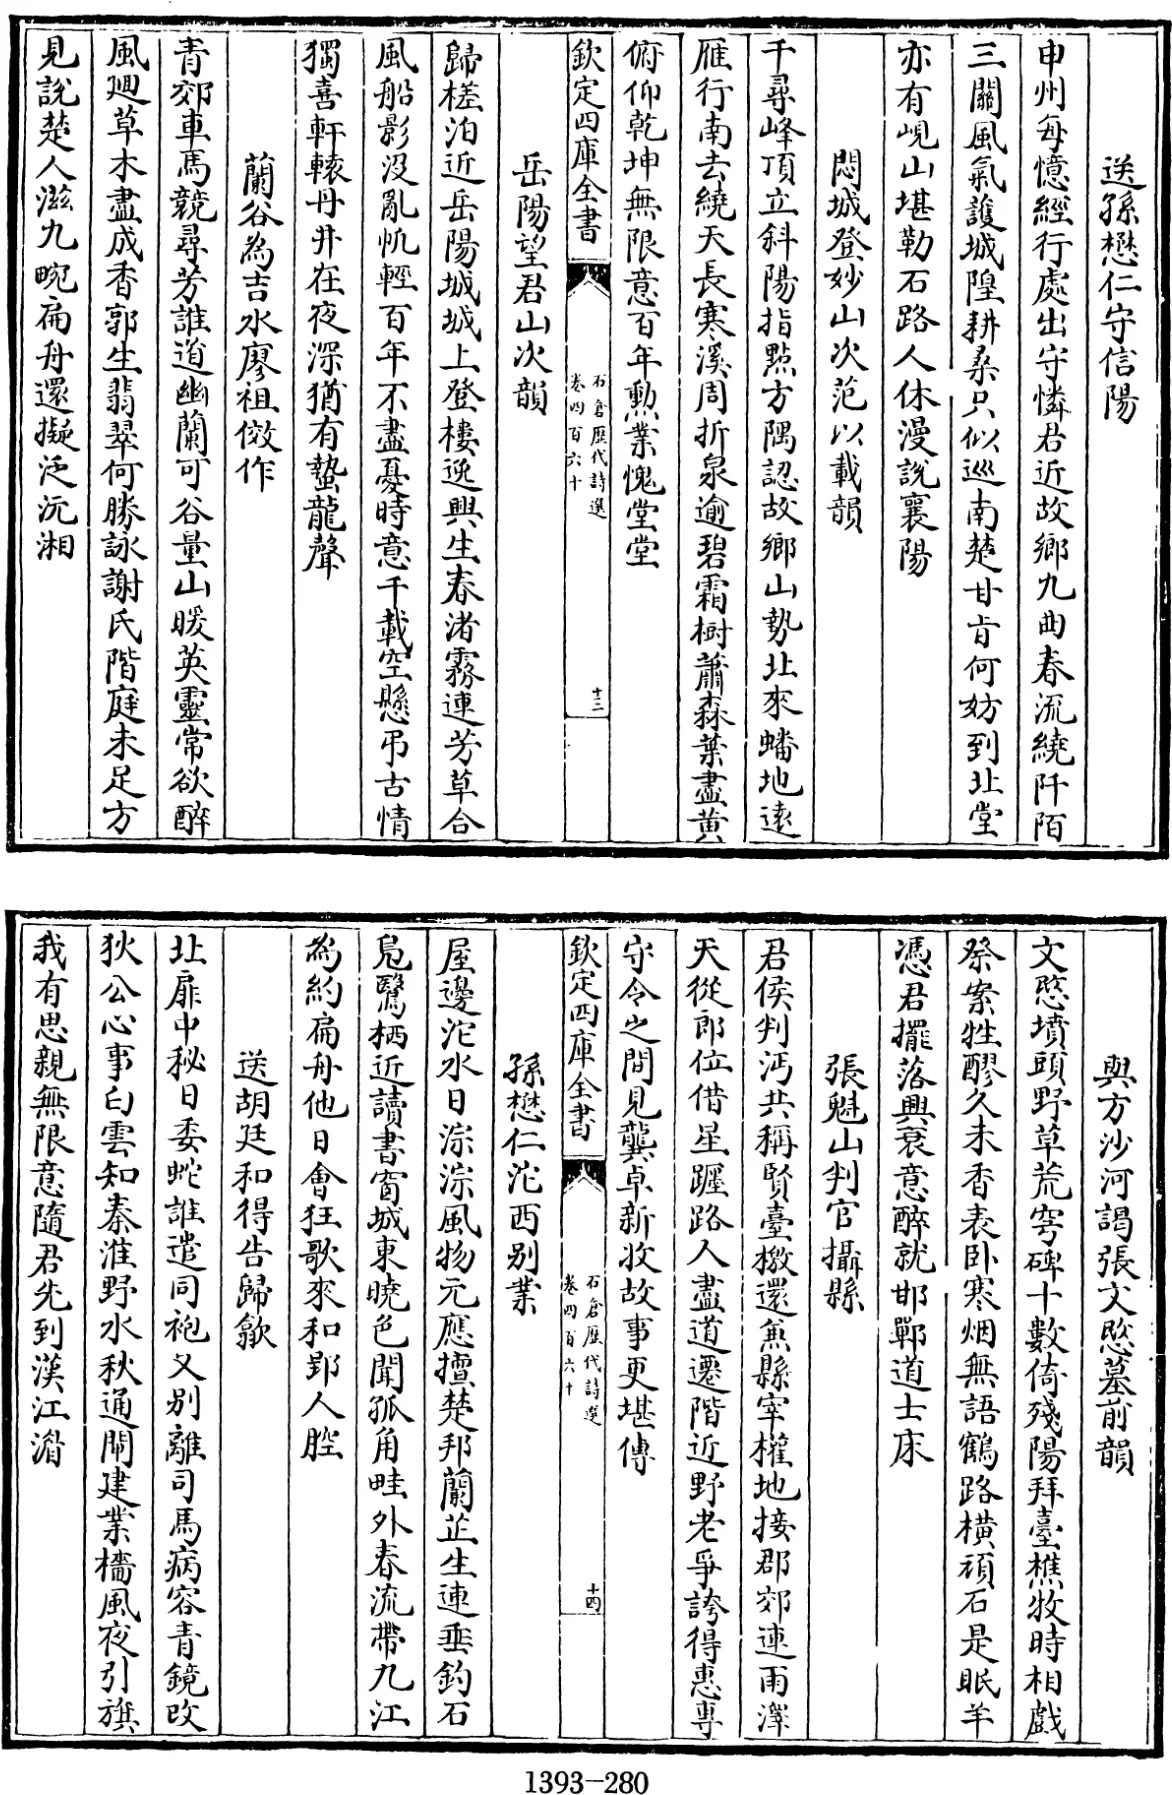 送孫懋仁守信陽
申州每憶經行處出守憐君近故鄉九曲春流繞阡陌
三關風氣護城隍耕桑只似巡南楚甘旨何妨到北堂
亦有峴山堪勒石路人休漫說襄陽
悶城登妙山次范以載韻
千尋峰頂立斜陽指點方隅認故鄉山勢北來蟠地遠
雁行南去繞天長寒溪周折泉逾碧霜樹蕭森葉盡黄
俯仰乾坤無限意百年勲業愧堂堂
欽定四庫全書
石倉歷代詩選
卷四百六十
十三
岳陽望君山次韻
歸槎泊近岳陽城城上登樓逸興生春渚霧連芳草合
風船影没亂帆輕百年不盡憂時意千載空懸弔古情
獨喜軒轅丹井在夜深猶有蟄龍聲
蘭谷為吉水廖祖倣作
青郊車馬競尋芳誰道幽蘭可谷量山暖英靈常欲醉
風廻草木盡成香郭生翡翠何勝詠謝氏階庭未足方
見說楚人滋九畹扁舟還擬泛沅湘
與方沙河謁張文愍墓前韻
文愍墳頭野草荒穹碑十數倚殘陽拜臺樵牧時相戲
祭案牲醪久未香表卧寒烟無語鶴路橫頑石是眠羊
憑君擺落興衰意醉就邯鄲道士床
張魁山判官攝縣
君侯判沔共稱賢臺檄還兼縣宰權地接郡郊連雨澤
天從郎位借星躔路人盡道遷階近野老爭誇得惠專
守令之間見龔卓新收故事更堪傳
欽定四庫全書
石倉歷代詩選
卷四百六十
十四
孫懋仁沱西别業
屋邊沱水日淙淙風物元應擅楚邦蘭芷生連垂釣石
鳧鷖栖近讀書窗城東曉色聞孤角畦外春流帶九江
為約扁舟他日會狂歌來和郢人腔
送胡廷和得告歸歙
北扉中秘日委蛇誰遣同袍又别離司馬病容青鏡改
狄公心事白雲知秦淮野水秋通閘建業檣風夜引旗
我有思親無限意隨君先到漢江湄
1393-280